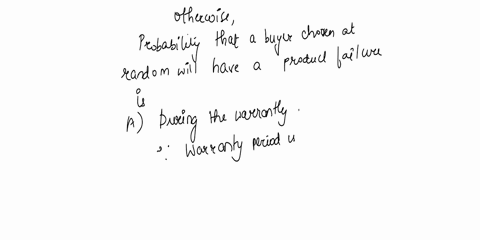 otherwise,
Probability that a buyer chosen at
random will have a product failure
is
A) During the warrantly.
∵ Warranty period u